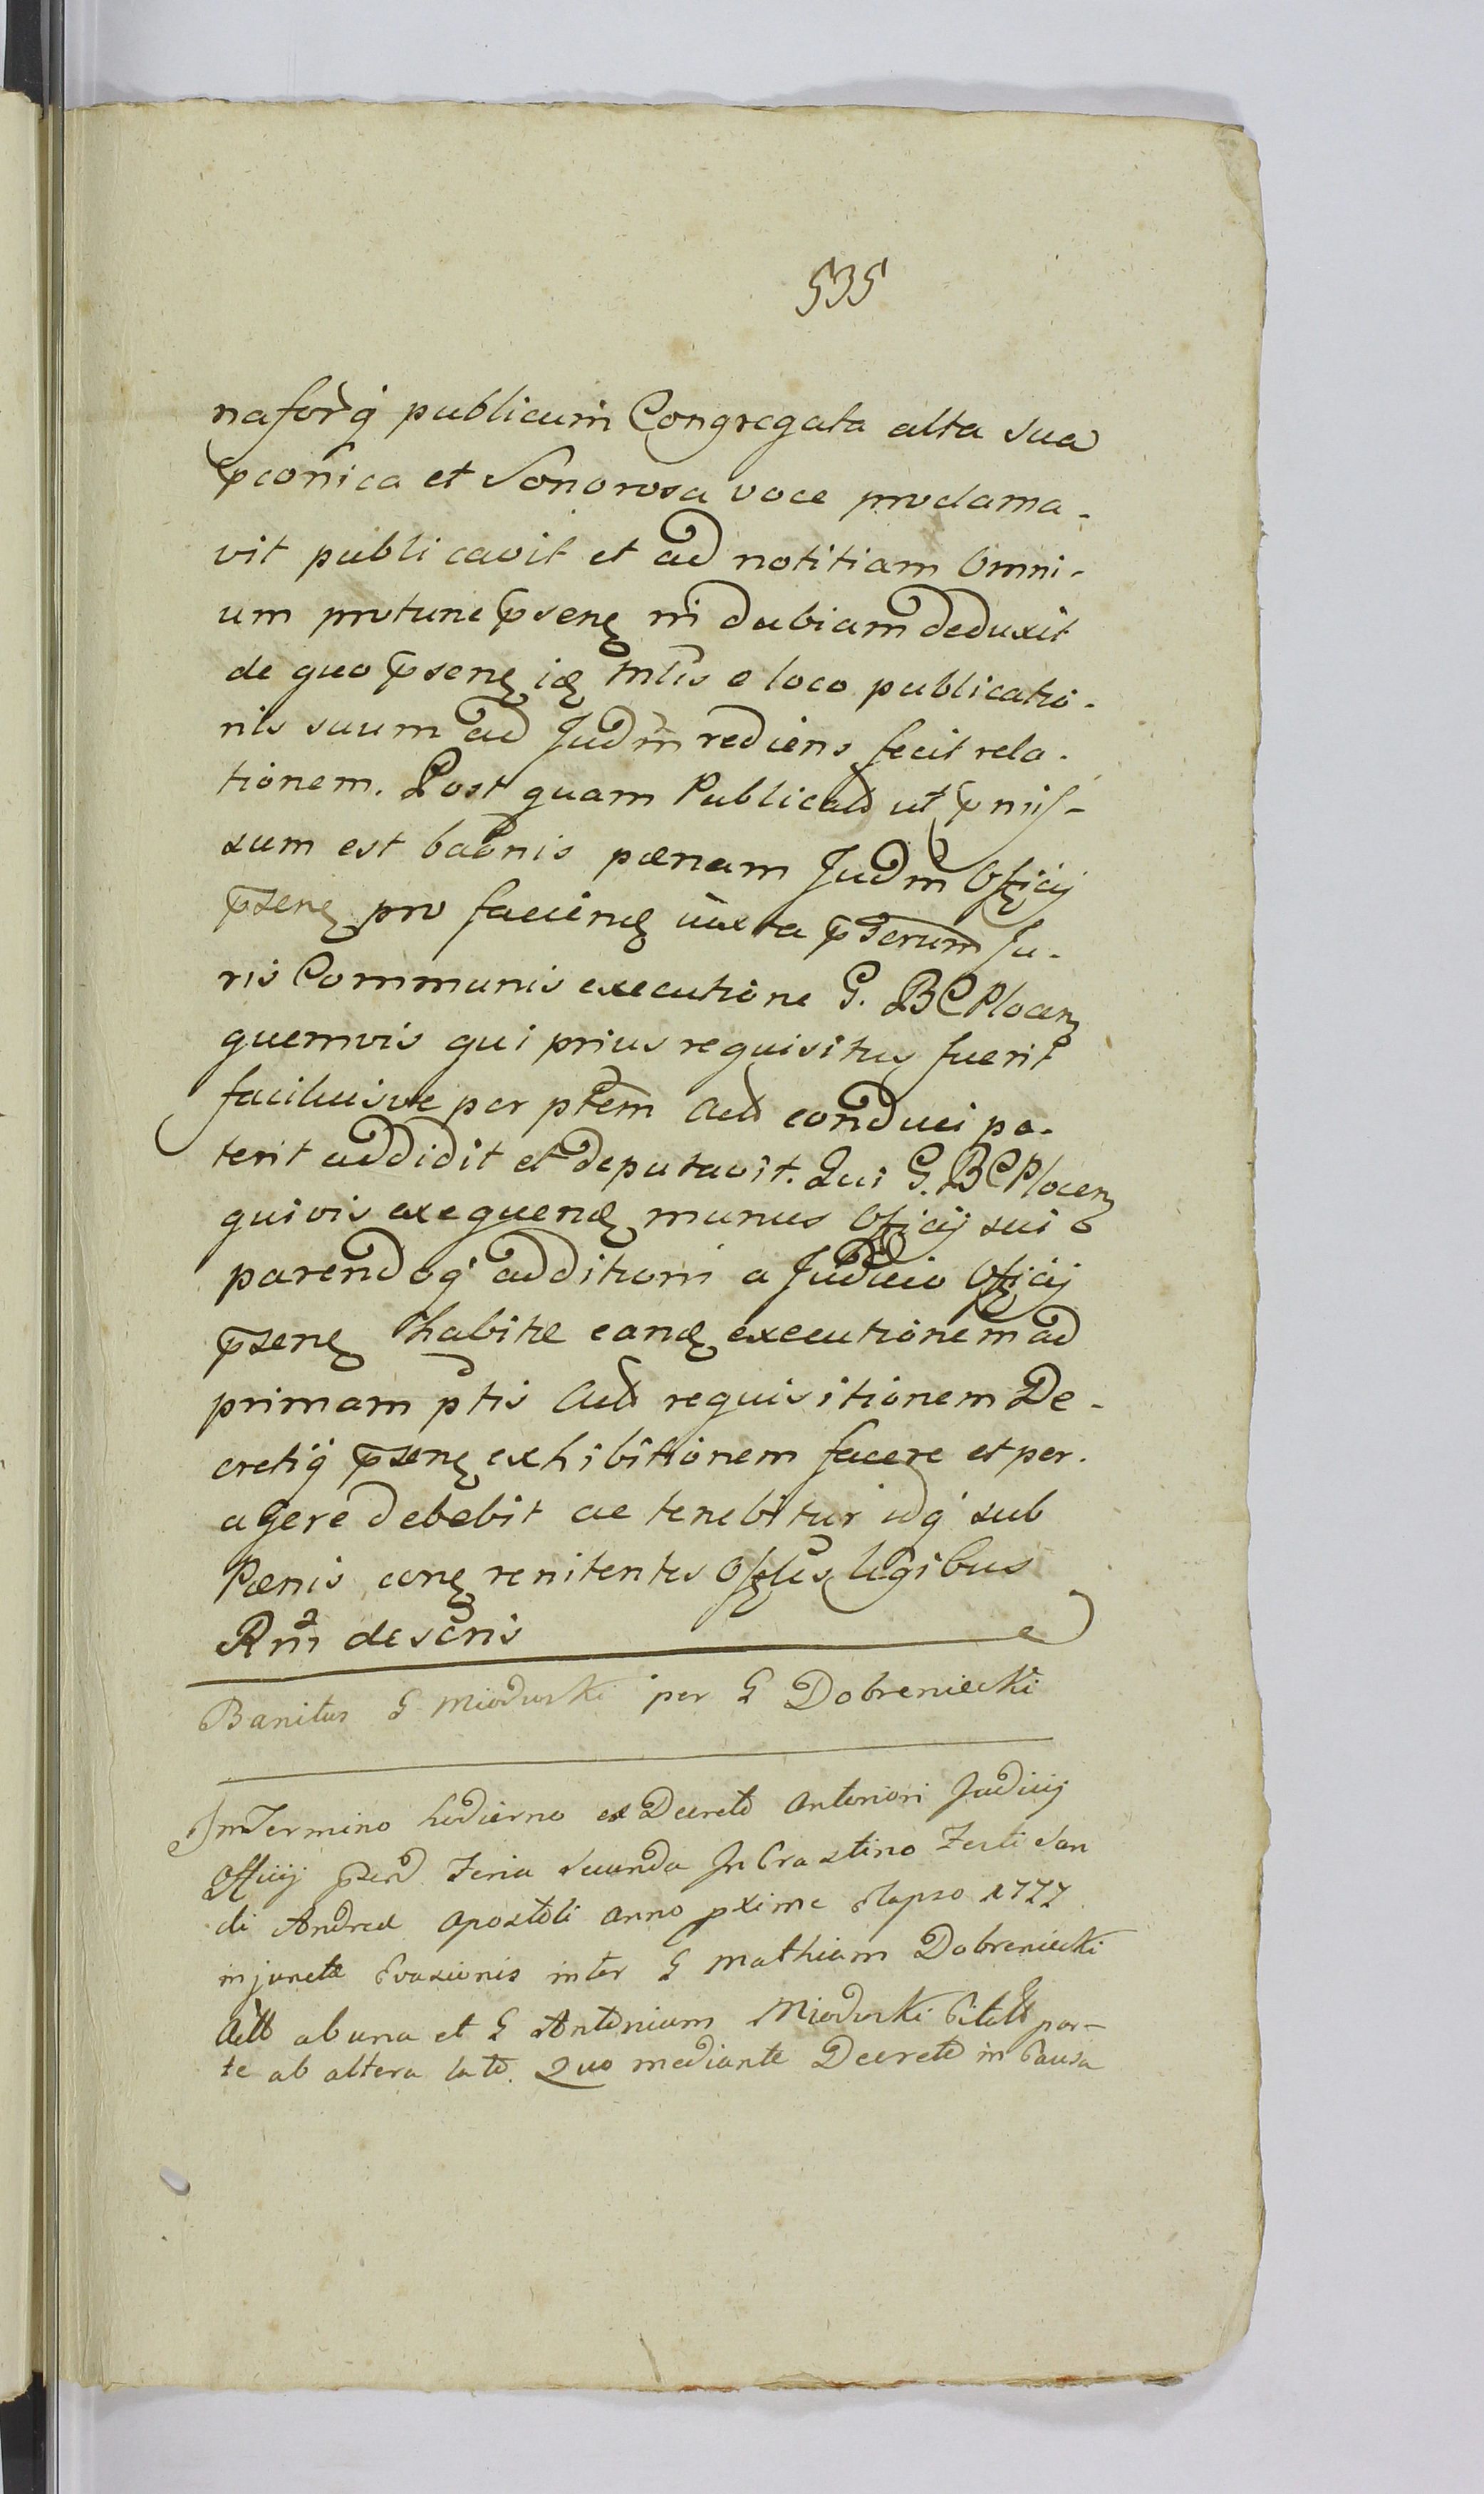 535
naforq̇ publicum Congregata alta sua
p̄conica et Sonorosa voce proclama-
vit publicavit et ad notitiam Omni-
um protunc p̄senę m̄ dubiam deduxit
de quo p̄senę ię Mlis e loco publicatio-
nis suum ad Judm̄ rediens fecit rela-
tionem. Post quam Publicad ut p̄mis-
sum est badnis pænam Judm̄ Offcij
p̄senę pro facienę iuxta p̄sterum Ju-
ris Communis executione G. BC Plocen
quemvis qui prius requisitus fuerit
faciliusve per ptem̄ Act conduci po-
terit addidit et deputavit. Qui G. BC Plocen
quivis exequenę munus Offcij sui
parendoq̇ additioni a Judicio Offcij
p̄senę habitæ eanę executionem ad
primam ptis Act requisitionem De-
cretiq̇ p̄senę exhibitionem facere et per-
agere debebit ac tenebitur idq̇ sub
Pænis conę renitentes Offles legibus
Rm̄ descris
Banitus G Mioduski per G Dobreniecki
In Termino hodierno ex Decreto Anteriori Judicij
Officij p̄send Feria Secunda In Crastino Festi San
cti Andreæ Apostoli Anno pxime Elapso 1777
injunctæ Evasionis inter G Mathiam Dobreniecki
Actt ab una et G Antonium Mioduski Citatt par-
te ab altera lato. Quo mediante Decreto in Causa